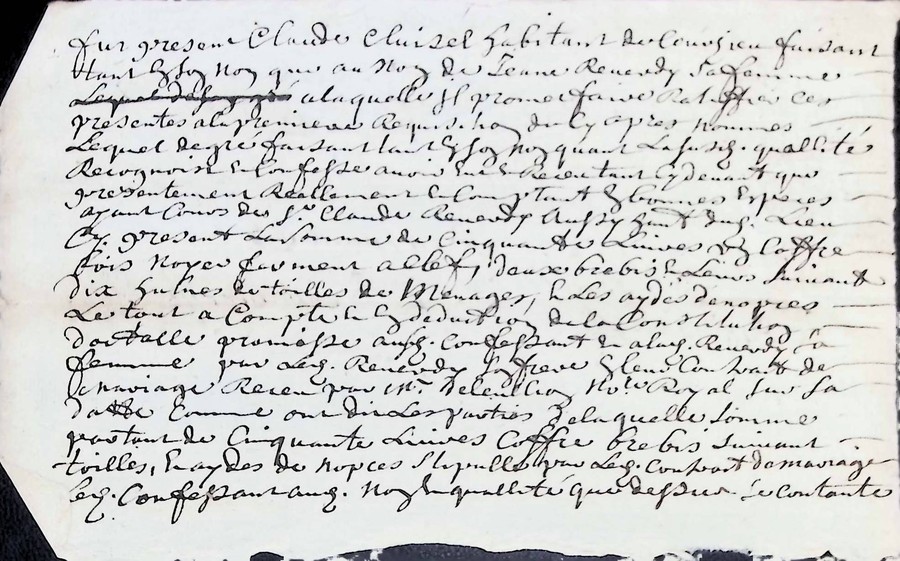 fut present Claude Cluisel habitant de Couzieu faisant
tant en son nom que au nom de Jeanne Reverdy sa femme
a laquelle Il promet faire Ratiffier ces
presentes a la premiere Requisition du cy apres nommes
Lequel de gré faisant tant en son nom quant La susd. quallité
Recognoist & Confesse avoir eu & Receu tant cy devant que
presentement Reellement & Comptant En bonnes Especes
ayant Cours de Sr. Claude Reverdy aussy hant dud. Lieu
Cy present La Somme de Cinquante Livres un Coffre
bois noyer fermant a clef, deux brebis & Leurs suivants
dix aulnes de toilles de Menages, & Les aydes de nopces
Le tout a Compte & En deduction de la Constitution
dotalle promisse aud. Confessant & a lad. Reverdy sa
femme par Led. Reverdy son frere En leur Contract de
mariage Receu par Mr. Notre Royal sur sa
datte Comme ont dit Les parties De laquelle somme
portant de Cinquante Livres Coffre brebis suivant
toilles, & aydes de nopces stipullés par Led. Contract de mariage
led. Confessant aud. nom & quallité que dessus se contante